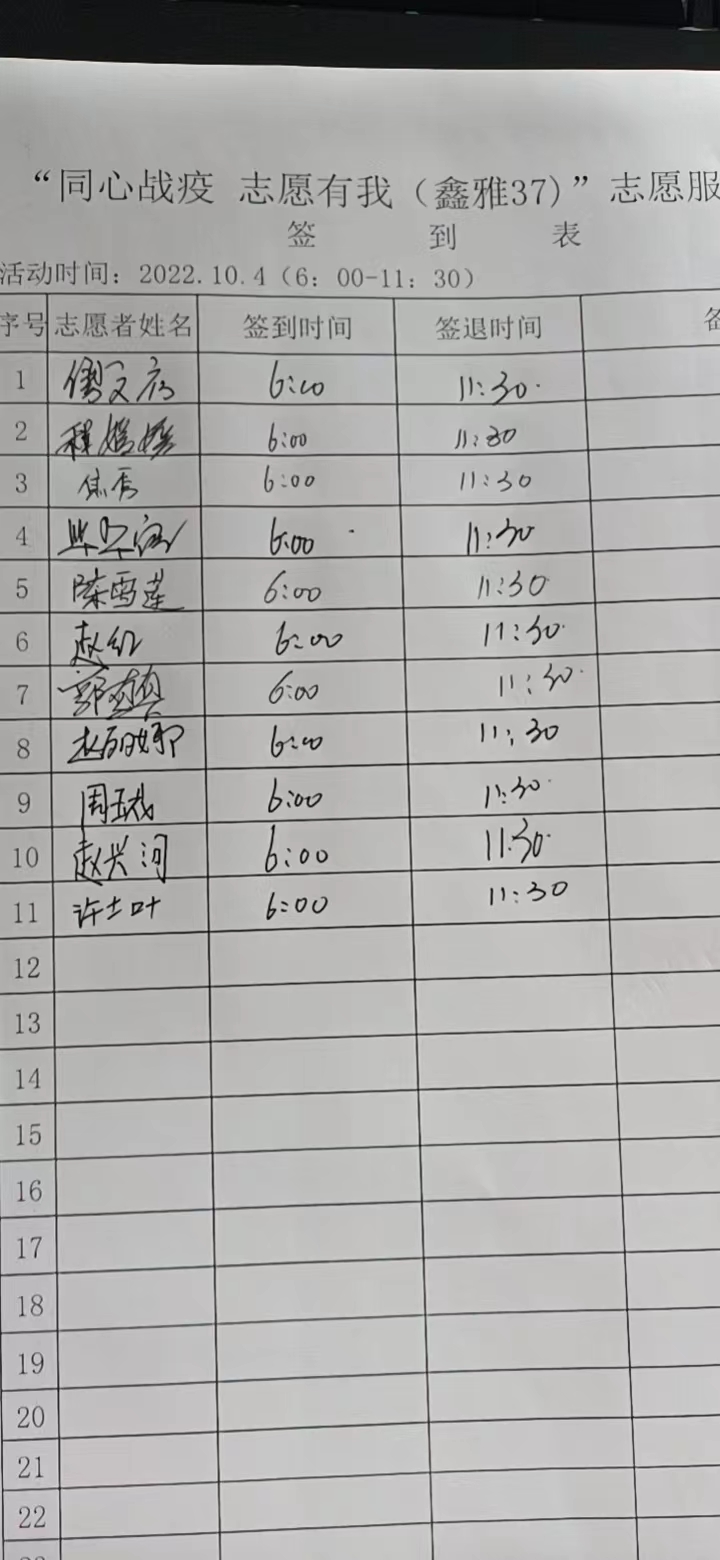 “同心战疫 志愿有我（鑫雅37）”志愿服
签 到 表
活动时间：2022.10.4（6：00-11：30）
序号 志愿者姓名 签到时间 签退时间
1 6:00 11:30
2 程嫱嫱 6:00 11:30
3 焦秀 6:00 11:30
4 6:00 11:30
5 陈雪莲 6:00 11:30
6 赵红 6:00 11:30
7 郭 6:00 11:30
8 6:00 11:30
9 周玉栽 6:00 11:30
10 赵兴河 6:00 11:30
11 许士叶 6:00 11:30
12
13
14
15
16
17
18
19
20
21
22